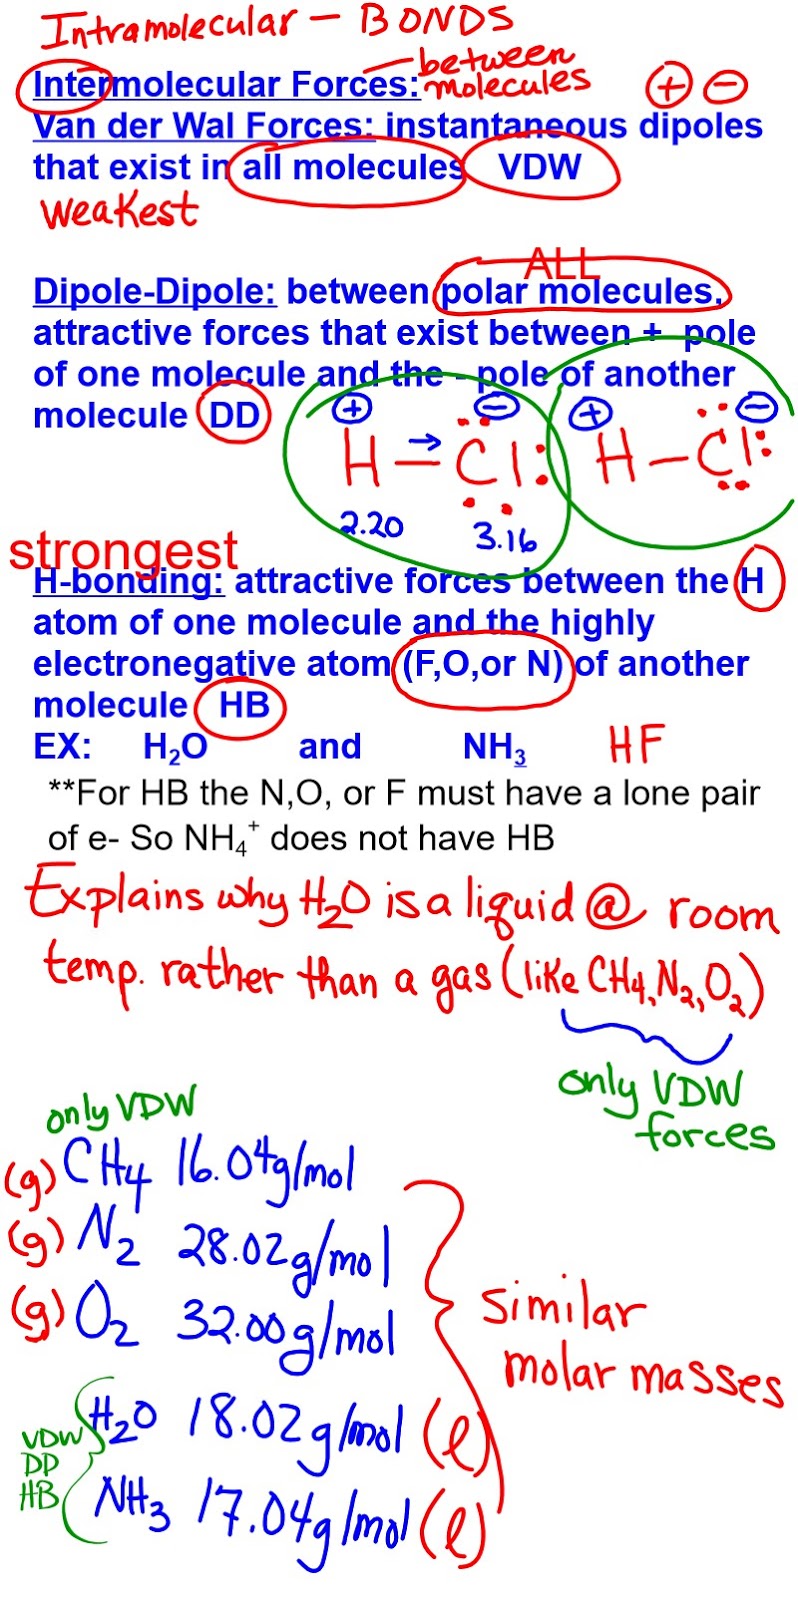 Intramolecular - BONDS
Intermolecular Forces: between molecules
+ -
Van der Wal Forces: instantaneous dipoles
that exist in all molecules VDW
weakest
ALL
Dipole-Dipole: between polar molecules,
attractive forces that exist between + pole
of one molecule and the - pole of another
molecule DD
+ - + -
H → Cl: H - Cl:
2.20 3.16
strongest
H-bonding: attractive forces between the H
atom of one molecule and the highly
electronegative atom (F,O,or N) of another
molecule HB
EX: H₂O and NH₃ HF
**For HB the N,O, or F must have a lone pair
of e- So NH₄⁺ does not have HB
Explains why H₂O is a liquid @ room
temp. rather than a gas (like CH₄, N₂, O₂)
only VDW
forces
only VDW
(g) CH₄ 16.04g/mol
(g) N₂ 28.02g/mol
(g) O₂ 32.00g/mol
similar
molar masses
VDW
DD
HB
H₂O 18.02g/mol (l)
NH₃ 17.04g/mol (l)